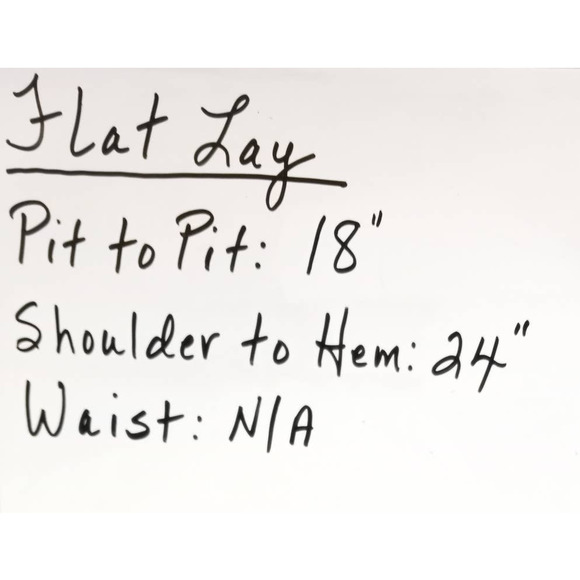 Flat Lay
Pit to Pit: 18"
Shoulder to Hem: 24"
Waist: N/A